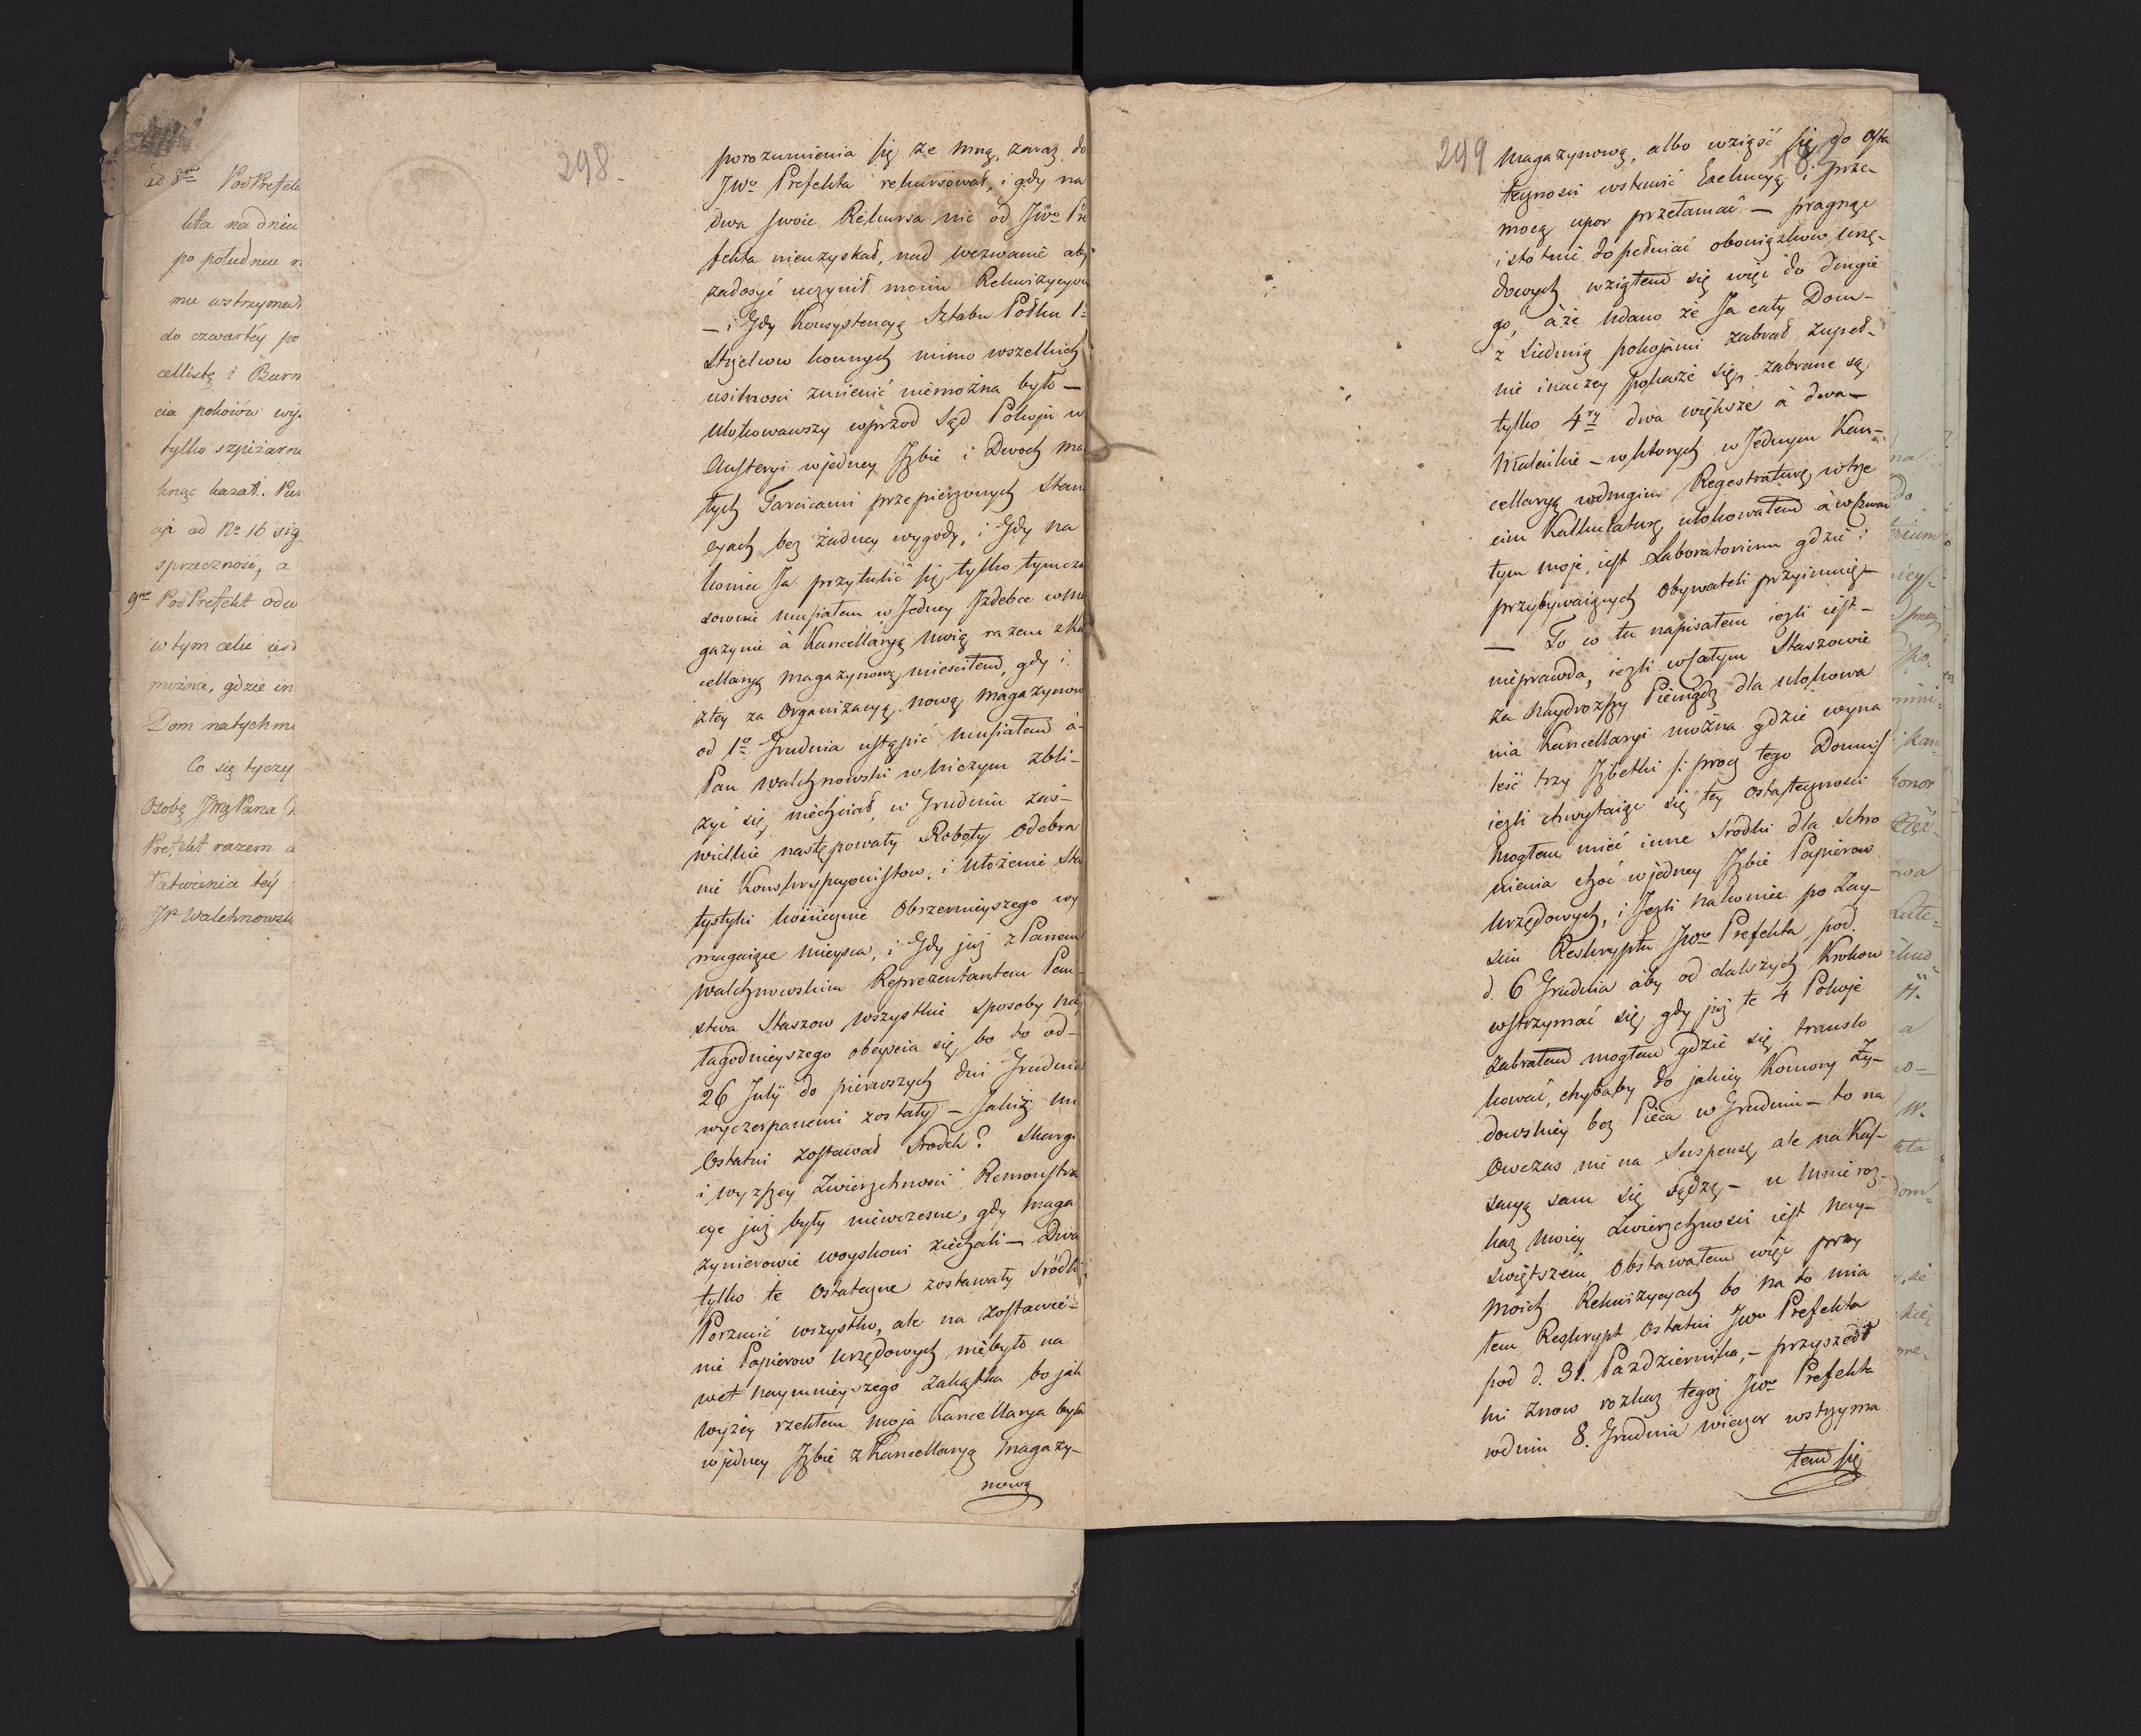 ad 8vum PodPrefek
kta na dniu
po południu
mu wstrzymać
do czwartéy po
cellistę i Burm
cia pokoiów wy
tylko szpiżarn
knąc kazał.
cji ad No 16 sig
sprzeczność, a
9no PodPrefekt odw
w tym celu iest
można, gdzie in
Dom natychmi
Co się tyczy
Osobę JWgo Pana
Prefekt razem
łatwienia téy
JP. Walchnowsk
298.
porozumienia się ze mną, zaraz do
JWo Prefekta rekursował, i gdy na
dwa swoie Rekursa nic od JWo Pre
fekta nieuzyskał, nad wezwanie aby
zadosyć uczynił moim Rekwizycyom
— i Gdy Konsystencyą Sztabu Połku 1o
Strzelcow konnych mimo wszelkich
usilności zmienić niemożna było —
Ulokowawszy wprzod Sąd Pokoju w
Austeryi w jedney Izbie i Dwoch ma
łych Tarcicami przepierzonych Stan
cyach bez żadney wygody, i Gdy na
koniec Ja przytulić się tylko tymcza
sowie musiałem w Jedney Izdebce w Ma
gazynie à Kancellaryą moią razem z Kan
cellaryą Magazynową miesciłem, gdy i
z tey za Organizacyą nową Magazynow
od 1o Grudnia ustąpić musiałem à
Pan Walchnowski w niczym zbli-
żyć się niechciał, w Grudniu zaś —
wielkie następowały Roboty Odebra
nie Konskrypcyonistow, i Ułożenie Sta
tystyki koniecznie Obszernieyszego wy
magaiące mieysca, i Gdy już z Panem
Walchnowskim Reprezentantem Pan-
stwa Staszow wszystkie sposoby nay
łagodnieyszego obeyscia się bo to od —
26 July do pierwszych dni Grudnia
wyczerpanemi zostały — Jakiż mi
Ostatni zostawał Srodek? Skargi
i wyższey Zwierzchności Remonstra
cye już były niewczesne, gdy Maga
zynierowie woyskowi ziechali — Dwa
tylko te Ostateczne zostawały Srodki,
Porzucić wszystko, ale na zostawie-
nie Papierow urzędowych niebyło na
wet naymnieyszego zakątka bo jak
wyżey rzekłem moja Kancellarya była
w jedney Izbie z Kancellaryą Magazy-
nową
299
magazynową, albo wziąść się do Osta
teczności wstawić Exekucyą i prze-
mocą upor przełamać — pragnąc
istotnie dopełniać obowiązkow urzę-
dowych wziąłem się więc do drugie
go, à że udano że Ja cały Dom —
z Siedmią pokojami zabrał, zupeł-
nie inaczey pokaże się, zabrane są
tylko 4ry dwa większe à dwa —
Maleńkie — w ktorych w Jednym Kan-
cellaryą w drugim Regestraturę w trze
cim Kalkulaturę ulokowałem à w czwar
tym moje iest Laboratorium gdzie i
przybywaiących Obywateli przyimuię —
— To co tu napisałem ieżli iest —
nieprawda, ieżli w całym Staszowie
za naydroższy Pieniądz dla ulokowa
nia Kancellaryi można gdzie wyna
leść trzy Izbetki /: procz tego Domu :/
ieżli chwytaiąc się tey Ostateczności
Mogłem mieć inne Srodki dla Schro
nienia choć w jedney Izbie Papierow
urzędowych, i Jeżli nakoniec po Zay-
sciu Reskryptu JWo Prefekta pod
d. 6 Grudnia aby od dalszych Krokow
wstrzymać się, gdy już te 4 Pokoje
zabrałem mogłem gdzie się translo
kować, chybaby do jakiey Komory Ży-
dowskiey bez Pieca w Grudniu — to na
Owczas nie na Suspensę ale na Kas-
sacyą sam się sądzę — u Mnie roz-
kaz moiey Zwierzchności iest nay-
swiętszem, Obstawałem więc przy
Moich Rekwizycyach bo na to mia
łem Reskrypt Ostatni JWo Prefekta
pod d. 31. Pazdziernika, — przyszedł
mi znow rozkaz tegoż JWo Prefekta
w dniu 8. Grudnia wieczor wstrzyma
łem się